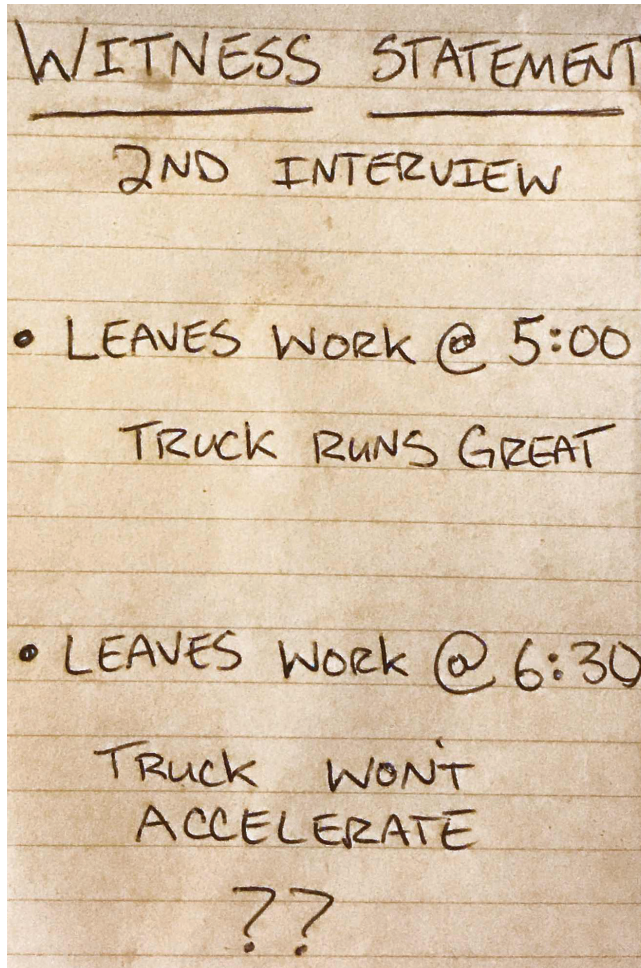 WITNESS STATEMENT
2ND INTERVIEW
• LEAVES WORK @ 5:00
TRUCK RUNS GREAT
• LEAVES WORK @ 6:30
TRUCK WON'T
ACCELERATE
??